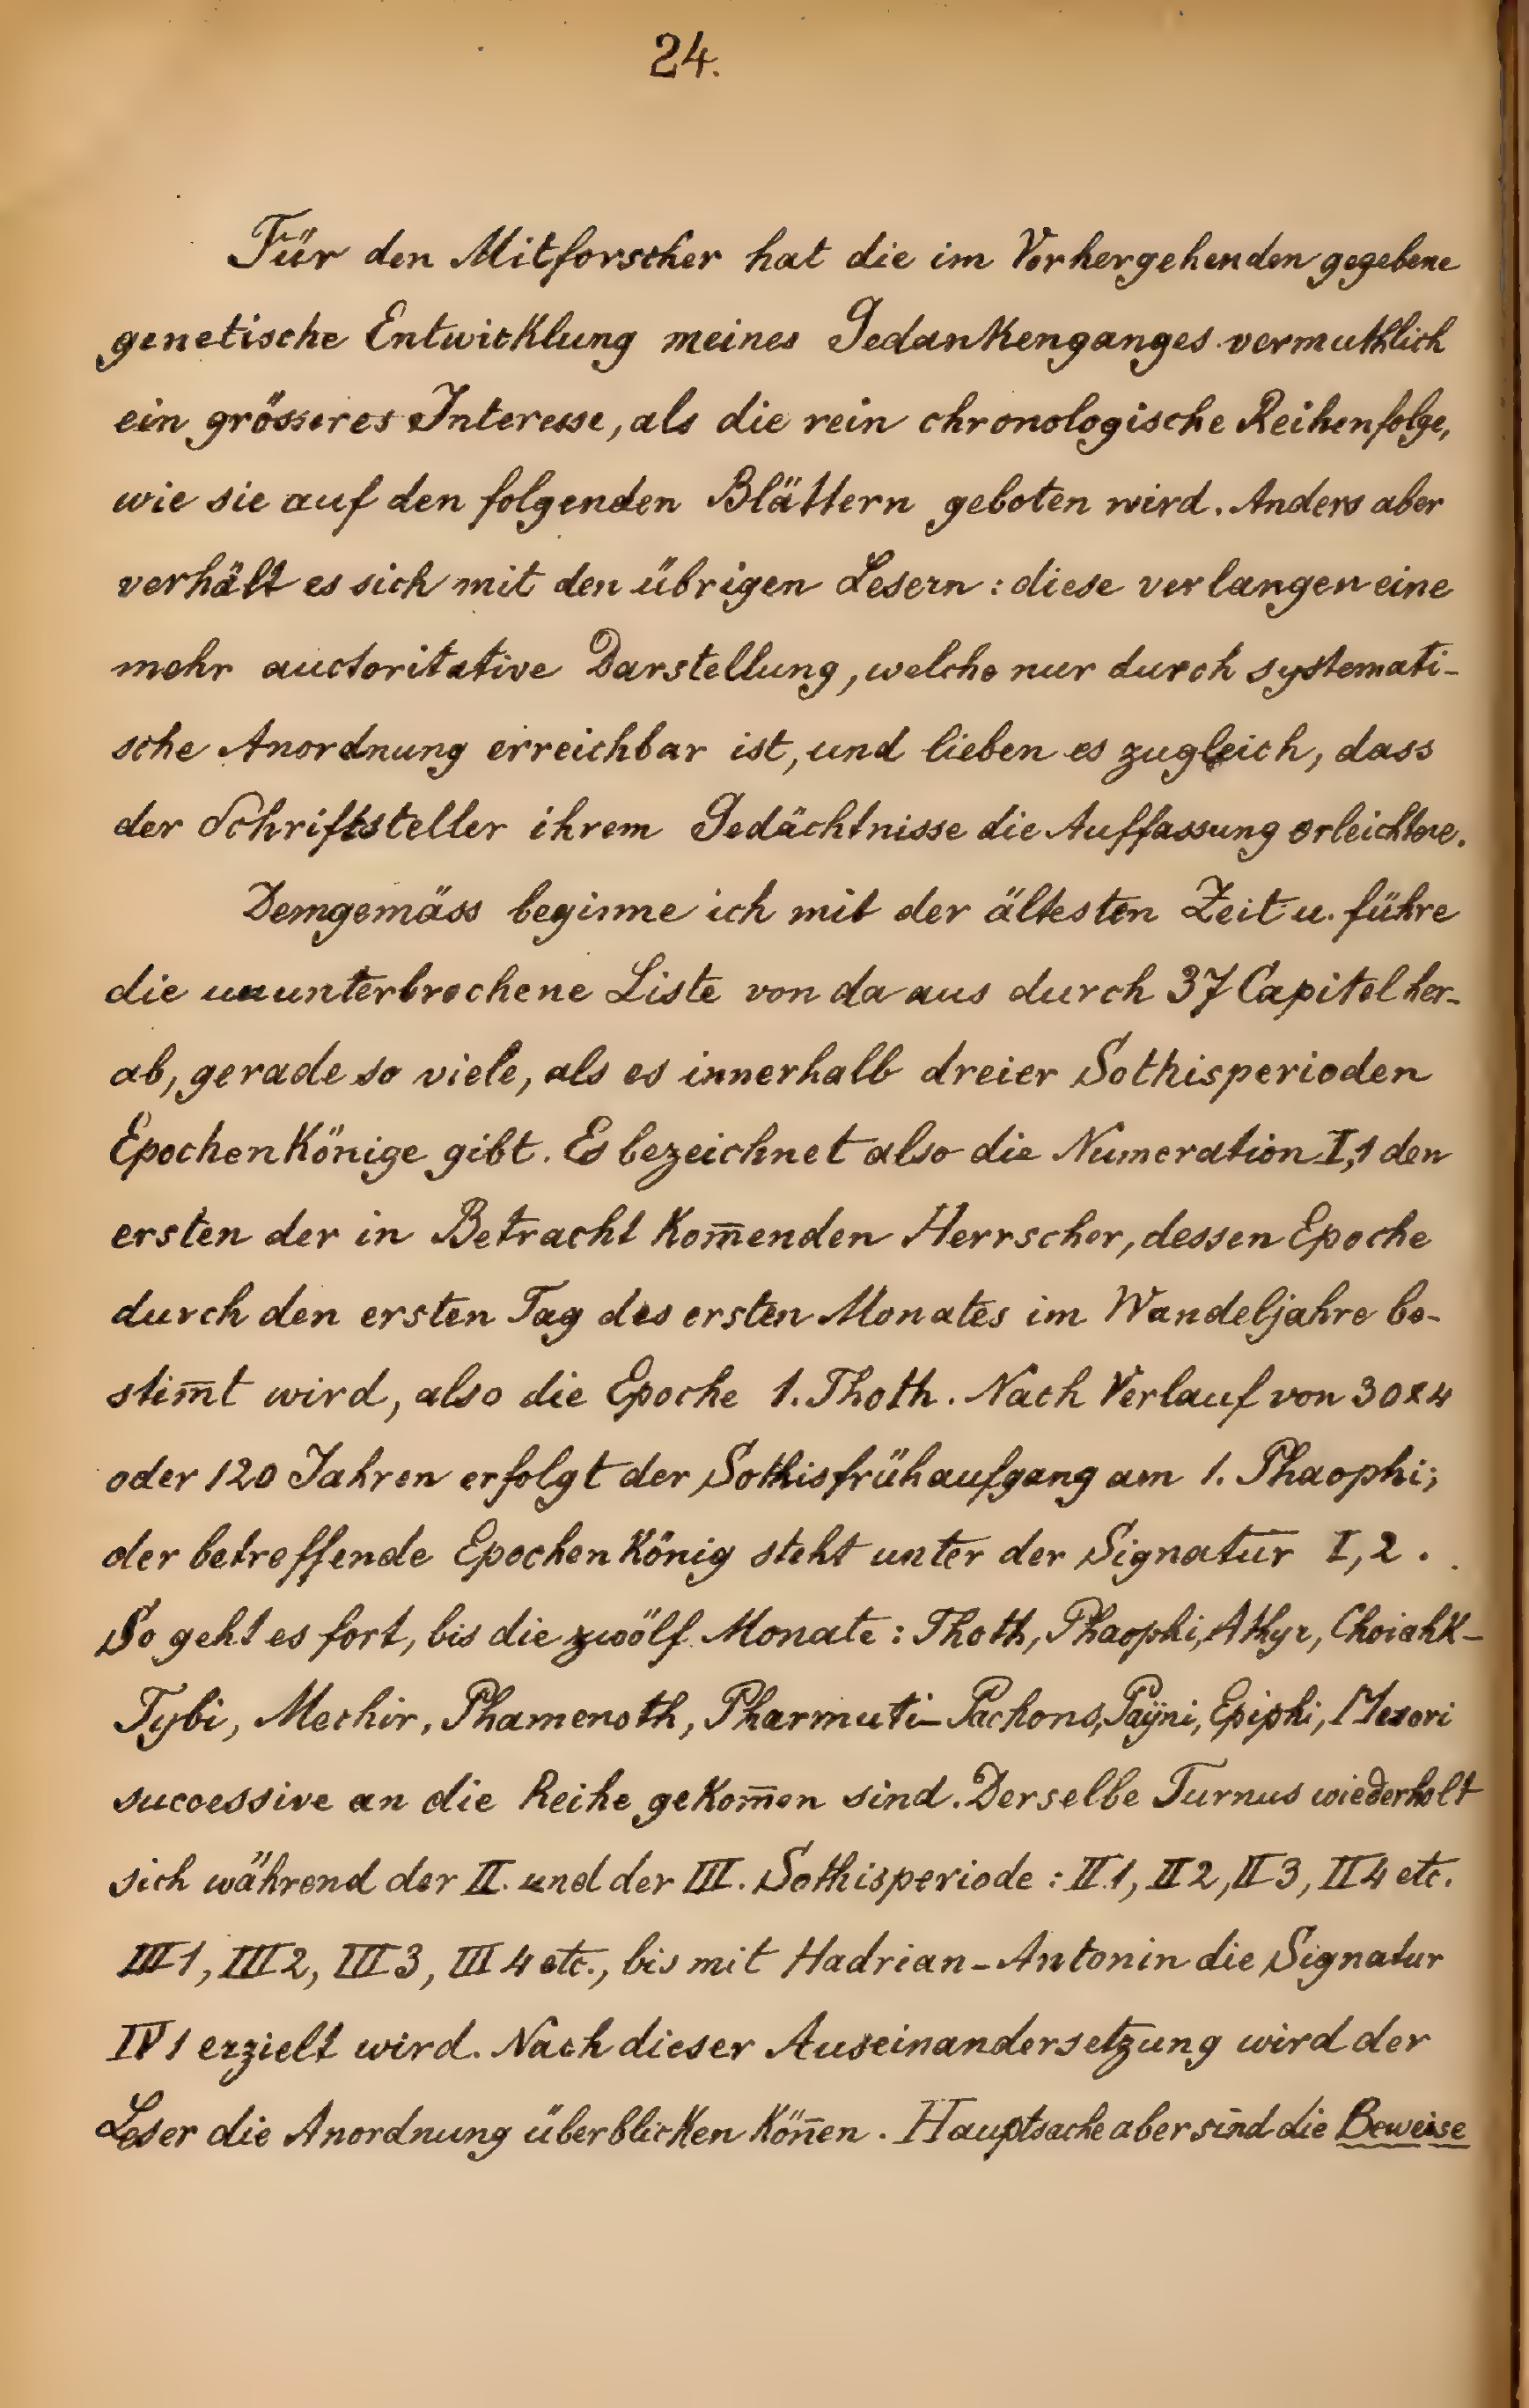 24.
Für den Mitforscher hat die im Vorhergehenden gegebene
genetische Entwicklung meines Gedankenganges vermuthlich
ein grösseres Interesse, als die rein chronologische Reihenfolge,
wie sie auf den folgenden Blättern geboten wird. Anders aber
verhält es sich mit den übrigen Lesern: diese verlangen eine
mehr auctoritative Darstellung, welche nur durch systemati-
sche Anordnung erreichbar ist, und lieben es zugleich, dass
der Schriftsteller ihrem Gedächtnisse die Auffassung erleichtere.
Demgemäss beginne ich mit der ältesten Zeit u. führe
die ununterbrochene Liste von da aus durch 37 Capitel her-
ab, gerade so viele, als es innerhalb dreier Sothisperioden
Epochenkönige gibt. Es bezeichnet also die Numeration I,1 den
ersten der in Betracht kom̄enden Herrscher, dessen Epoche
durch den ersten Tag des ersten Monates im Wandeljahre be-
stim̄t wird, also die Epoche 1. Thoth. Nach Verlauf von 30x4
oder 120 Jahren erfolgt der Sothisfrühaufgang am 1. Phaophi;
der betreffende Epochenkönig steht unter der Signatur I,2.
So geht es fort, bis die zwölf Monate: Thoth, Phaophi, Athyr, Choiahk-
Tybi, Mechir, Phamenoth, Pharmuti-Pachons, Paÿni, Epiphi, Mesori
successive an die Reihe gekom̄en sind. Derselbe Turnus wiederholt
sich während der II. und der III. Sothisperiode: II1, II2, II3, II4 etc.
III1, III2, III3, III4 etc., bis mit Hadrian-Antonin die Signatur
IV1 erzielt wird. Nach dieser Auseinandersetzung wird der
Leser die Anordnung überblicken kön̄en. Hauptsache aber sind die Beweise